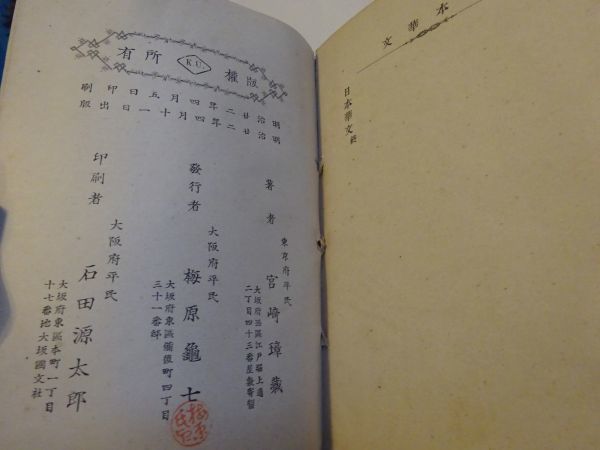 版權
K.U.
所有
明治廿二年四月五日印刷
明治廿二年四月十一日出版
著者
東京府平民
宮崎璋藏
發行者
大阪府平民
梅原龜七
大坂府東區備後町四丁目
三十一番邸
印刷者
大阪府平民
石田源太郎
大坂府東區本町一丁目
十七番地大坂國文社
本華文
日本華文社